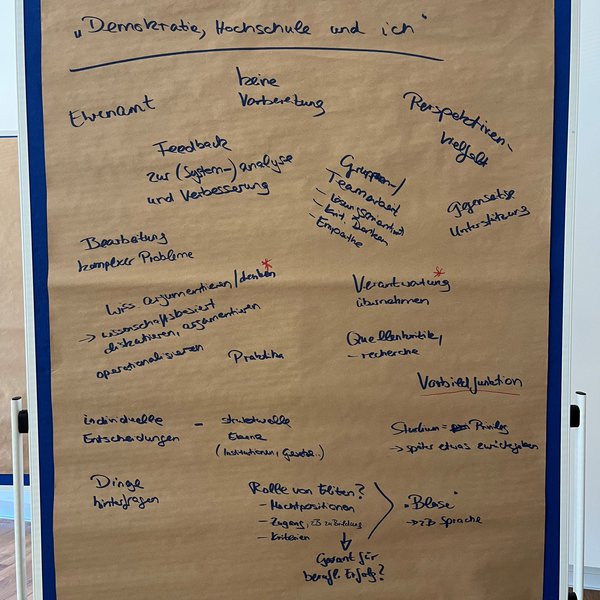 „Demokratie, Hochschule und ich"
Ehrenamt
keine
Vorbereitung
Perspektiven-
vielfalt
Feedback
zur (System-)analyse
und Verbesserung
Gruppen-/
Teamarbeit
- Lösungsorientiert
- krit. Denken
- Empathie
gegenseitige
Unterstützung
Bearbeitung
komplexer Probleme
Wiss. argumentieren/denken*
→ wissenschaftsbasiert
diskutieren, argumentieren
operationalisieren
Praktika
Verantwortung*
übernehmen
Quellenkritik,
- recherche
Vorbildfunktion
individuelle
Entscheidungen
- strukturelle
Ebene
(Institutionen, Gesetze..)
Studium = Privileg
→ später etwas zurückgeben
Dinge
hinterfragen
Rolle von Eliten?
- Machtpositionen
- Zugang, zB zu Bildung
- Kriterien
Garant für
berufl. Erfolg?
„Blase"
→ zB Sprache